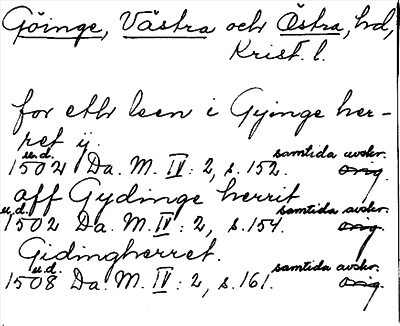 Göinge, Västra och Östra, hd,
Krist. l.
for eth leen i Gyinge her-
ret ÿ.
u.d. samtida avskr.
1502 Da. M. IV: 2, s. 152. orig.
aff Gydinge herrit
u.d. samtida avskr.
1502 Da. M. IV: 2, s. 154. orig.
Gidingherret.
u.d. samtida avskr.
1508 Da. M. IV: 2, s. 161. orig.